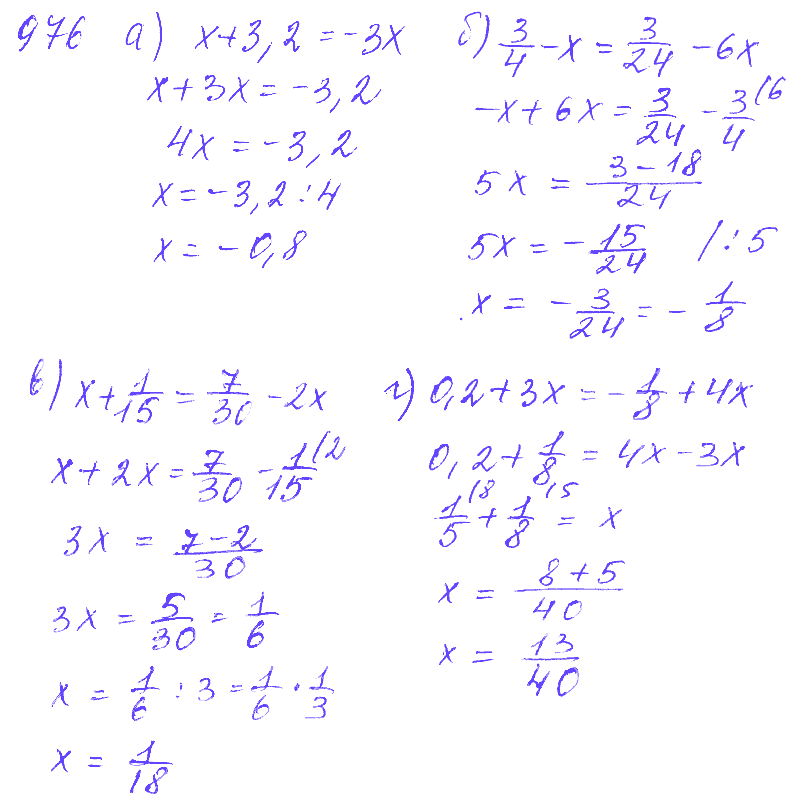 976 а) x+3,2=-3x
x+3x=-3,2
4x=-3,2
x=-3,2:4
x=-0,8
б) 3/4-x=3/24-6x
-x+6x=3/24-3/4(6
5x=(3-18)/24
5x=-15/24 /:5
x=-3/24=-1/8
в) x+1/15=7/30-2x
x+2x=7/30-1/15(2
3x=(7-2)/30
3x=5/30=1/6
x=1/6:3=1/6·1/3
x=1/18
г) 0,2+3x=-1/8+4x
0,2+1/8=4x-3x
1/5(8+1/8(5=x
x=(8+5)/40
x=13/40